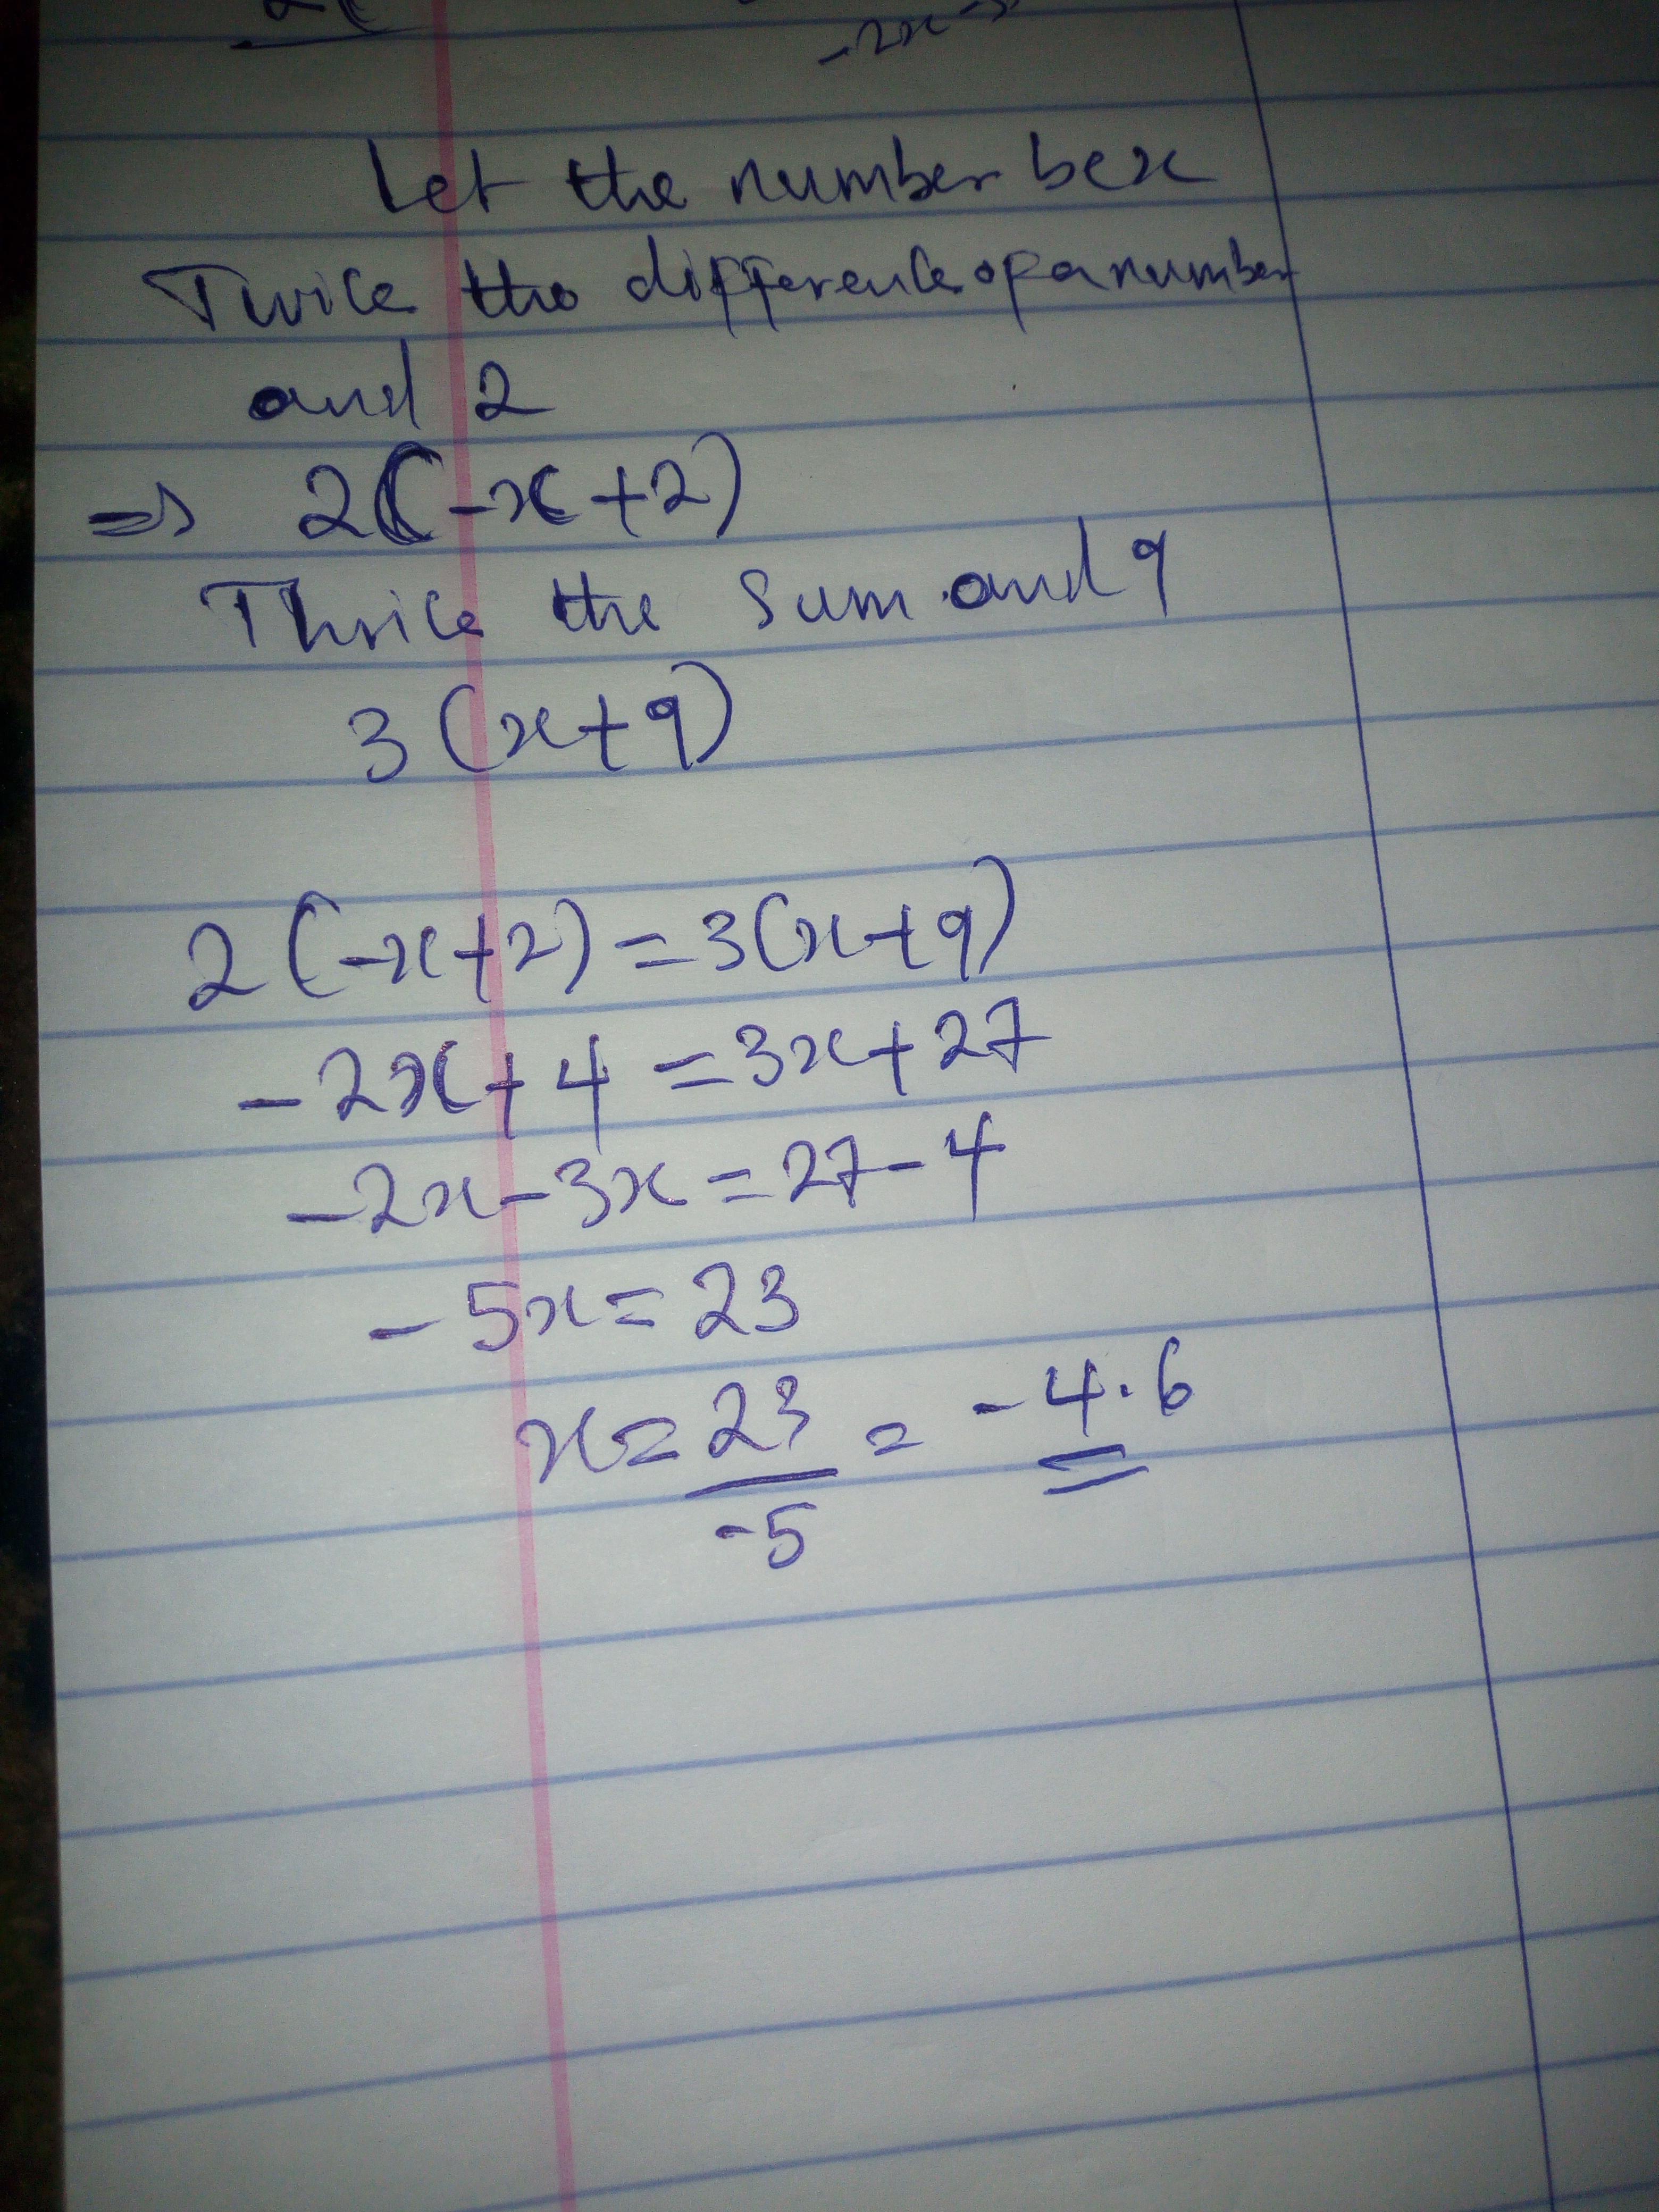 -2x
Let the number be x
Twice the difference of a number
and 2
⇒ 2(-x+2)
Thrice the sum and 9
3(x+9)
2(-x+2)=3(x+9)
-2x+4=3x+27
-2x-3x=27-4
-5x=23
x=23/-5 = -4.6